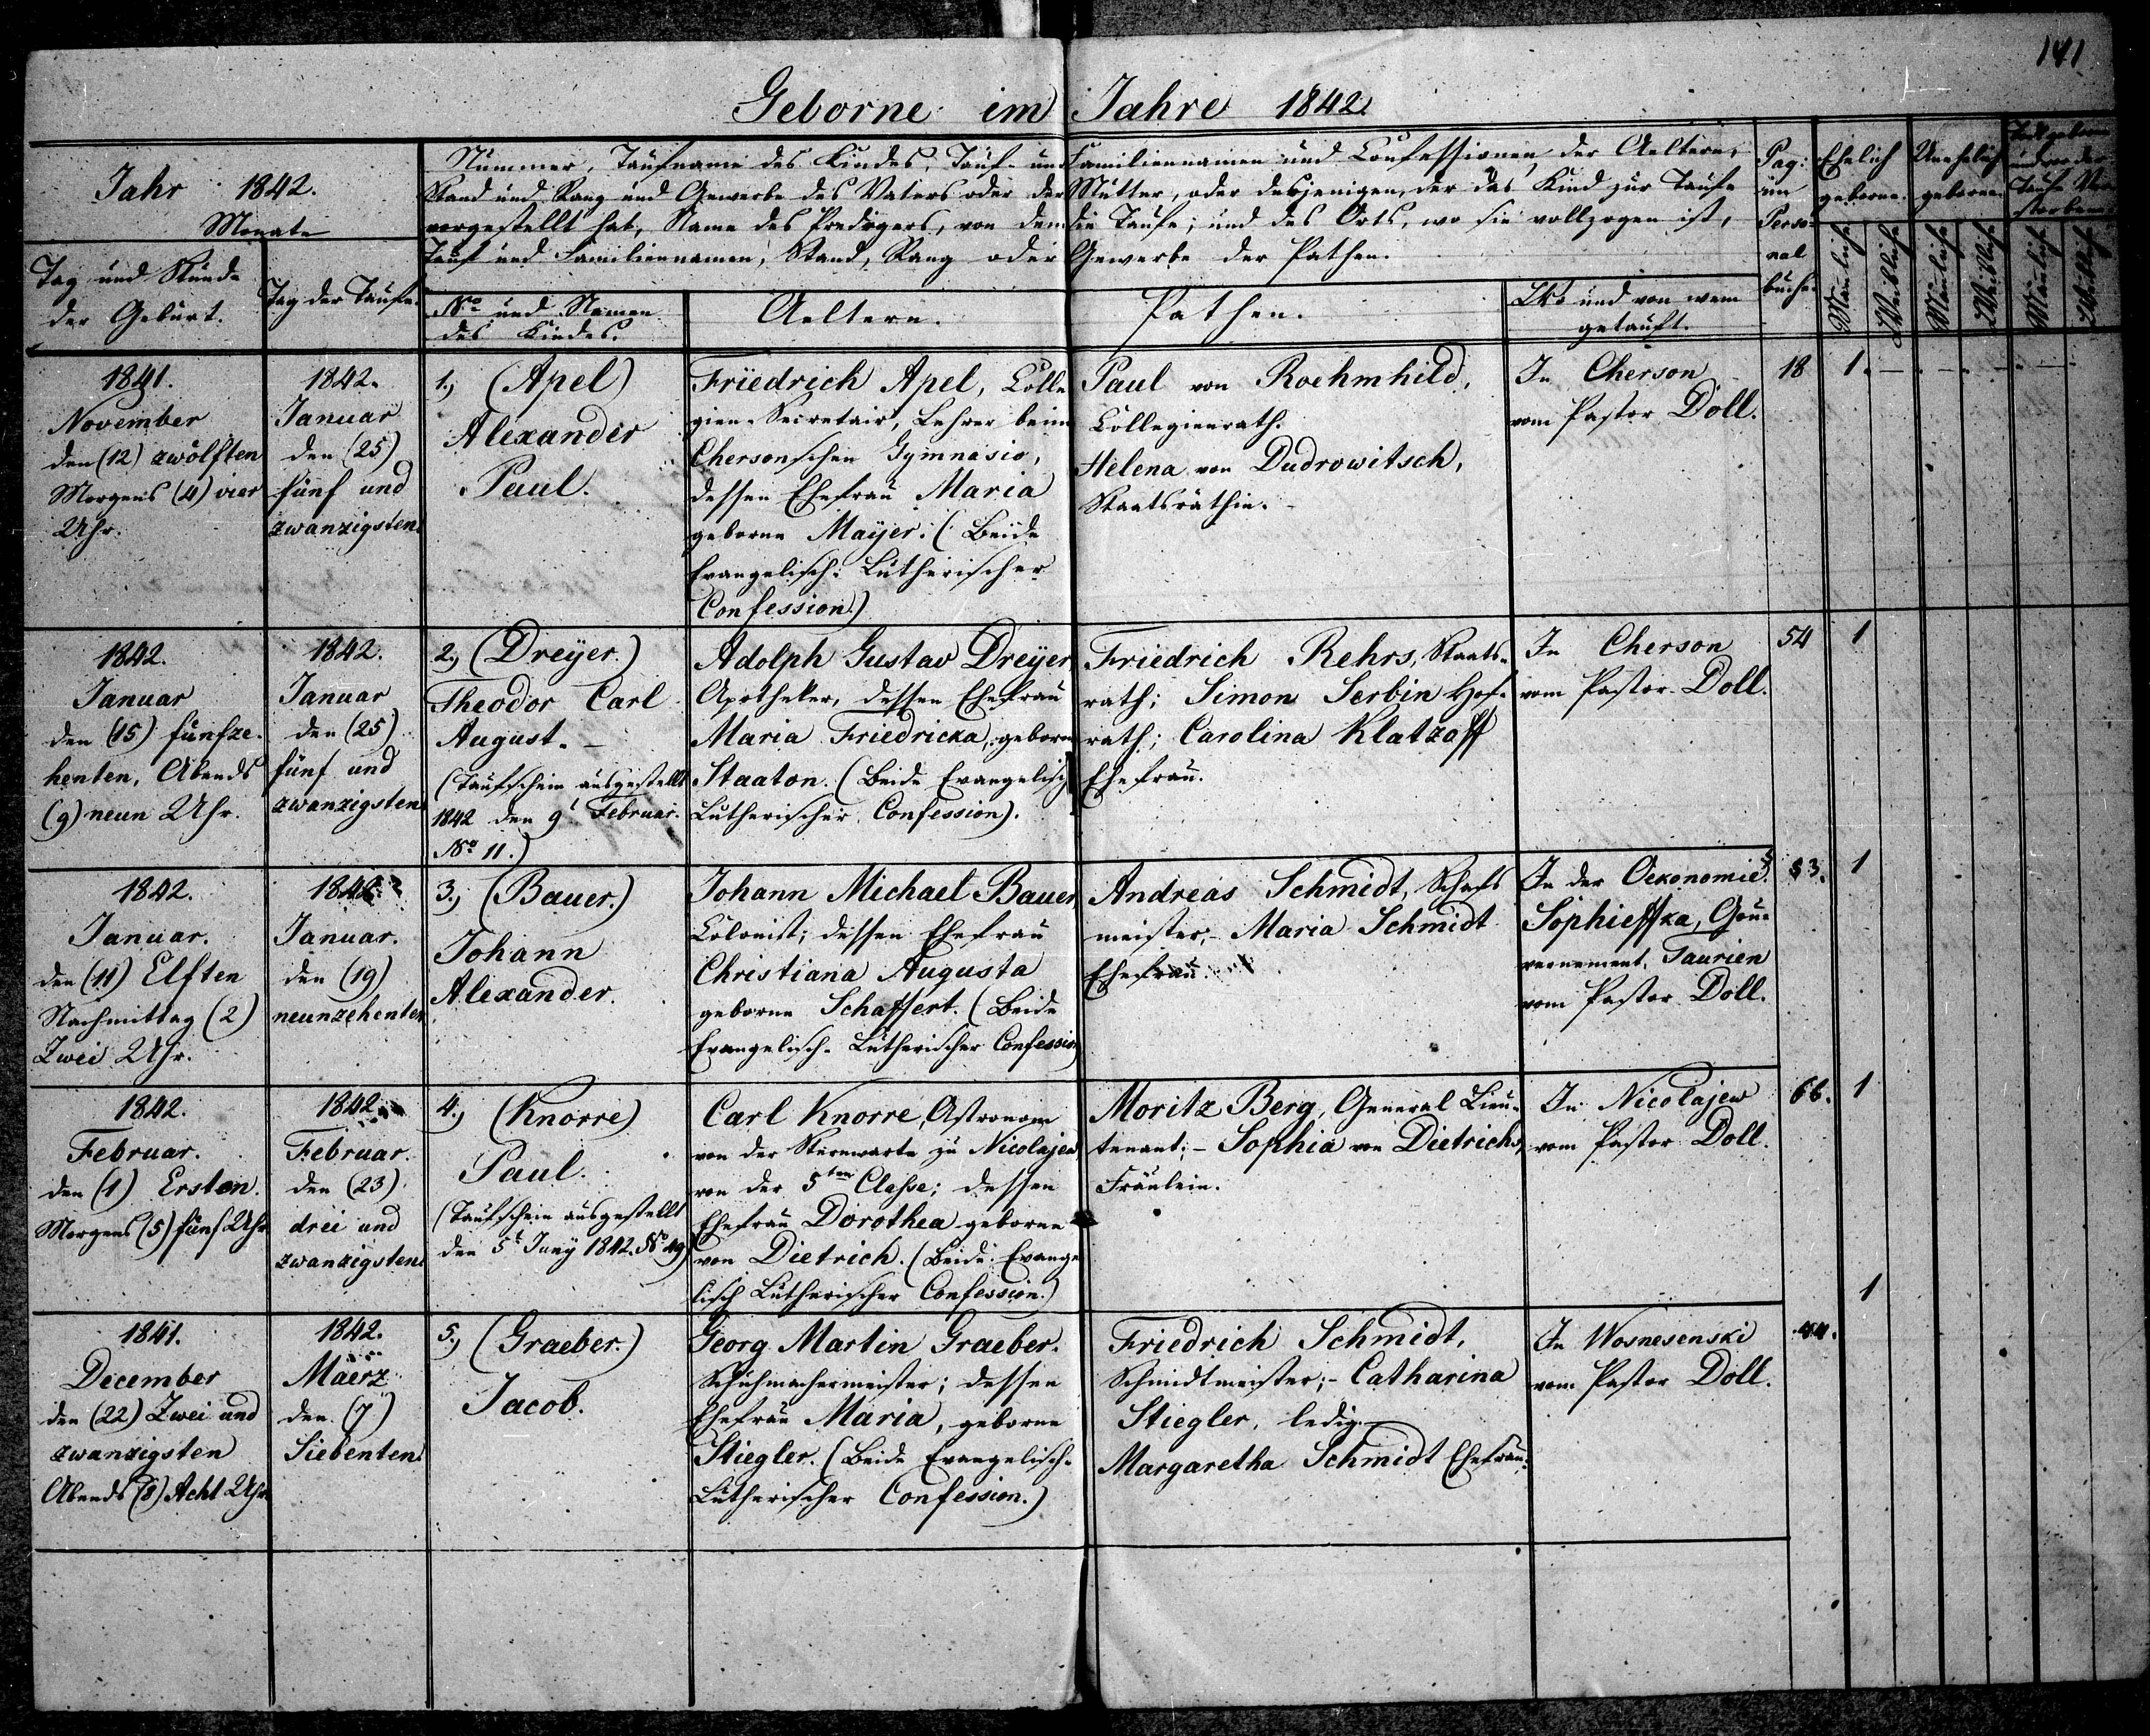 141
Geborne im Jahre 1842
Jahr 1842.
Monate
Tag und Stunde
der Geburt.
Tag der Taufe.
Nummer, Taufname des Kindes, Tauf- und Familiennamen und Confessionen der Aeltern,
Stand und Rang und Gewerbe des Vaters oder der Mutter, oder desjenigen, der das Kind zur Taufe
vorgestellt hat, Name des Predigers, von dem die Taufe; und des Orts, wo sie vollzogen ist,
Tauf und Familiennamen, Stand, Rang oder Gewerbe der Pathen.
No und Namen
des Kindes.
Aeltern.
Pathen.
Wo und von wem
getauft.
Pag:
im
Perso-
nal
buche.
Ehelich
geborne.
Unehelich
geborne.
Todtgeborne
und vor der
Taufe Ver-
storbene
Männliche
Weibliche
Männliche
Weibliche
Männliche
Weibliche
1841.
November
den (12) zwölften
Morgens (4) vier
Uhr.
1842.
Januar
den (25)
fünf und
zwanzigsten
1.) (Apel)
Alexander
Paul.
Friedrich Apel, Colle
gien-Secretair, Lehrer beim
Chersonschen Gymnasio,
dessen Ehefrau Maria
geborne Mayer. (Beide
Evangelisch-Lutherischer
Confession.)
Paul von Roehmhild,
Collegienrath.
Helena von Dudrowitsch,
Staatsräthin.
In Cherson
vom Pastor Doll.
18 1.
1842.
Januar
den (15) fünfze-
henten, Abends
(9) neun Uhr.
1842.
Januar
den (25)
fünf und
zwanzigsten
2.) (Dreyer.)
Theodor Carl
August.
(Taufschein ausgestellt
1842 den 9t Februar.
No 11.)
Adolph Gustav Dreyer
Apotheker, dessen Ehefrau
Maria Friedricka, geborne
Staaton. (Beide Evangelisch
Lutherischer Confession).
Friedrich Rehrs, Staats-
rath; Simon Serbin Hof-
rath; Carolina Klatzoff
Ehefrau.
In Cherson
vom Pastor Doll.
54 1
1842.
Januar.
den (11) Elften
Nachmittag (2)
Zwei Uhr.
1842.
Januar.
den (19)
neunzehenten
3.) (Bauer.)
Johann
Alexander.
Johann Michael Bauer
Colonist; dessen Ehefrau
Christiana Augusta
geborne Schaffert. (Beide
Evangelisch-Lutherischer Confession
Andreas Schmidt, Schafs
meister,- Maria Schmidt
Ehefrau.
In der Oekonomie
Sophieffka, Gou-
vernement Taurien
vom Pastor Doll.
83. 1
1842.
Februar.
den (1) Ersten.
Morgens (5) fünf Uhr
1842.
Februar.
den (23)
drei und
zwanzigsten
4.) (Knorre)
Paul.
(Taufschein ausgestellt
den 5t Juny 1842. No 49)
Carl Knorre, Astronom
von der Sternwarte zu Nicolajew
von der 5ten Classe; dessen
Ehefrau Dorothea geborne
von Dietrich. (Beide Evange
lisch Lutherischer Confession.)
Moritz Berg, General Lieu-
tenant;- Sophia von Dietrichs,
Fräulein.
In Nicolajew
vom Pastor Doll.
66. 1
1841.
December
den (22) Zwei und
zwanzigsten
Abends (8) Acht Uhr
1842.
Maerz
den (7)
Siebenten
5.) (Graeber.)
Jacob.
Georg Martin Graeber.
Schuhmachermeister; dessen
Ehefrau Maria, geborne
Stiegler. (Beide Evangelisch-
Lutherischer Confession.)
Friedrich Schmidt,
Schmidtmeister;- Catharina
Stiegler, ledig.-
Margaretha Schmidt Ehefrau.
In Wosnesenski
vom Pastor Doll.
44. 1